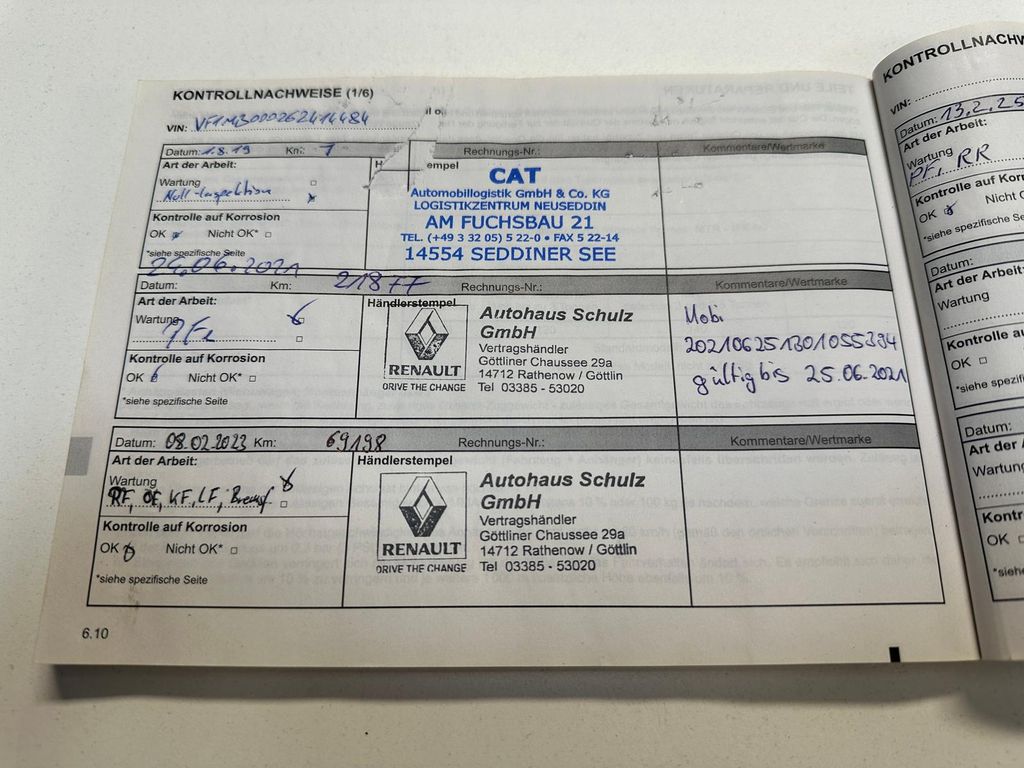 KONTROLLNACHWEISE (1/6)
VIN:
Datum: 1.8.19 Km: 1 Rechnungs-Nr.: Kommentare/Wertmarke
Art der Arbeit:
Wartung
Null-Inspektion
Kontrolle auf Korrosion
OK Nicht OK*
*siehe spezifische Seite
empel
CAT
Automobillogistik GmbH & Co. KG
LOGISTIKZENTRUM NEUSEDDIN
AM FUCHSBAU 21
TEL. (+49 3 32 05) 5 22-0 • FAX 5 22-14
14554 SEDDINER SEE
24.06.2021 21877
Datum: Km: Rechnungs-Nr.: Kommentare/Wertmarke
Art der Arbeit:
Wartung
Kontrolle auf Korrosion
OK Nicht OK*
*siehe spezifische Seite
Händlerstempel
RENAULT
DRIVE THE CHANGE
Autohaus Schulz
GmbH
Vertragshändler
Göttliner Chaussee 29a
14712 Rathenow / Göttlin
Tel 03385 - 53020
Mobi
gültig bis 25.06.2021
Datum: 08.02.2023 Km: 69198 Rechnungs-Nr.: Kommentare/Wertmarke
Art der Arbeit:
Wartung
Kontrolle auf Korrosion
OK Nicht OK*
*siehe spezifische Seite
Händlerstempel
RENAULT
DRIVE THE CHANGE
Autohaus Schulz
GmbH
Vertragshändler
Göttliner Chaussee 29a
14712 Rathenow / Göttlin
Tel 03385 - 53020
6.10
KONTROLLNACHW
VIN:
Datum: 13.2.25
Art der Arbeit:
Wartung
PF, RR
Kontrolle auf Korr
OK Nicht O
*siehe spezifische
Datum:
Art der Arbeit
Wartung
Kontrolle au
OK
*siehe spezif
Datum:
Art der A
Wartung
Kontr
OK
*siehe